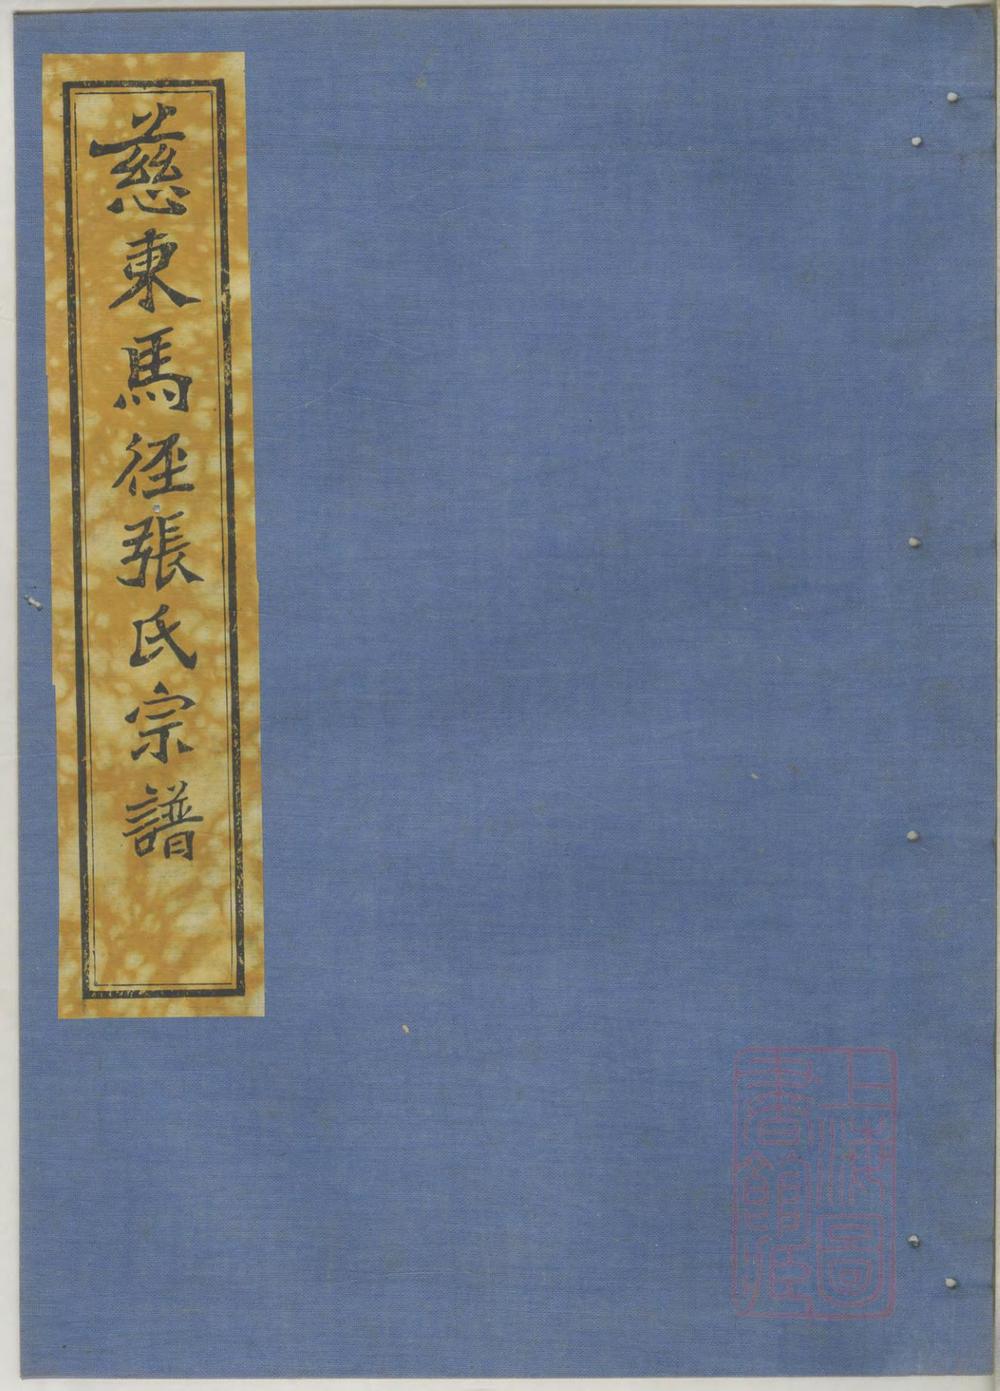 慈東馬徑張氏宗譜
上海圖
書館藏